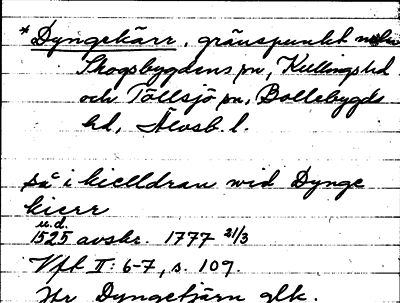 * Dyngekärr, gränspunkt mellan
Skogsbygdens sn, Kullings hd
och Töllsjö sn, Bollebygds
hd, Älvsb. l.
så i kielldran wid Dynge
kierr
u.d.
1525 avskr. 1777 21/3
Vft II: 6-7, s. 109.
Jfr Dyngetjärn glk.